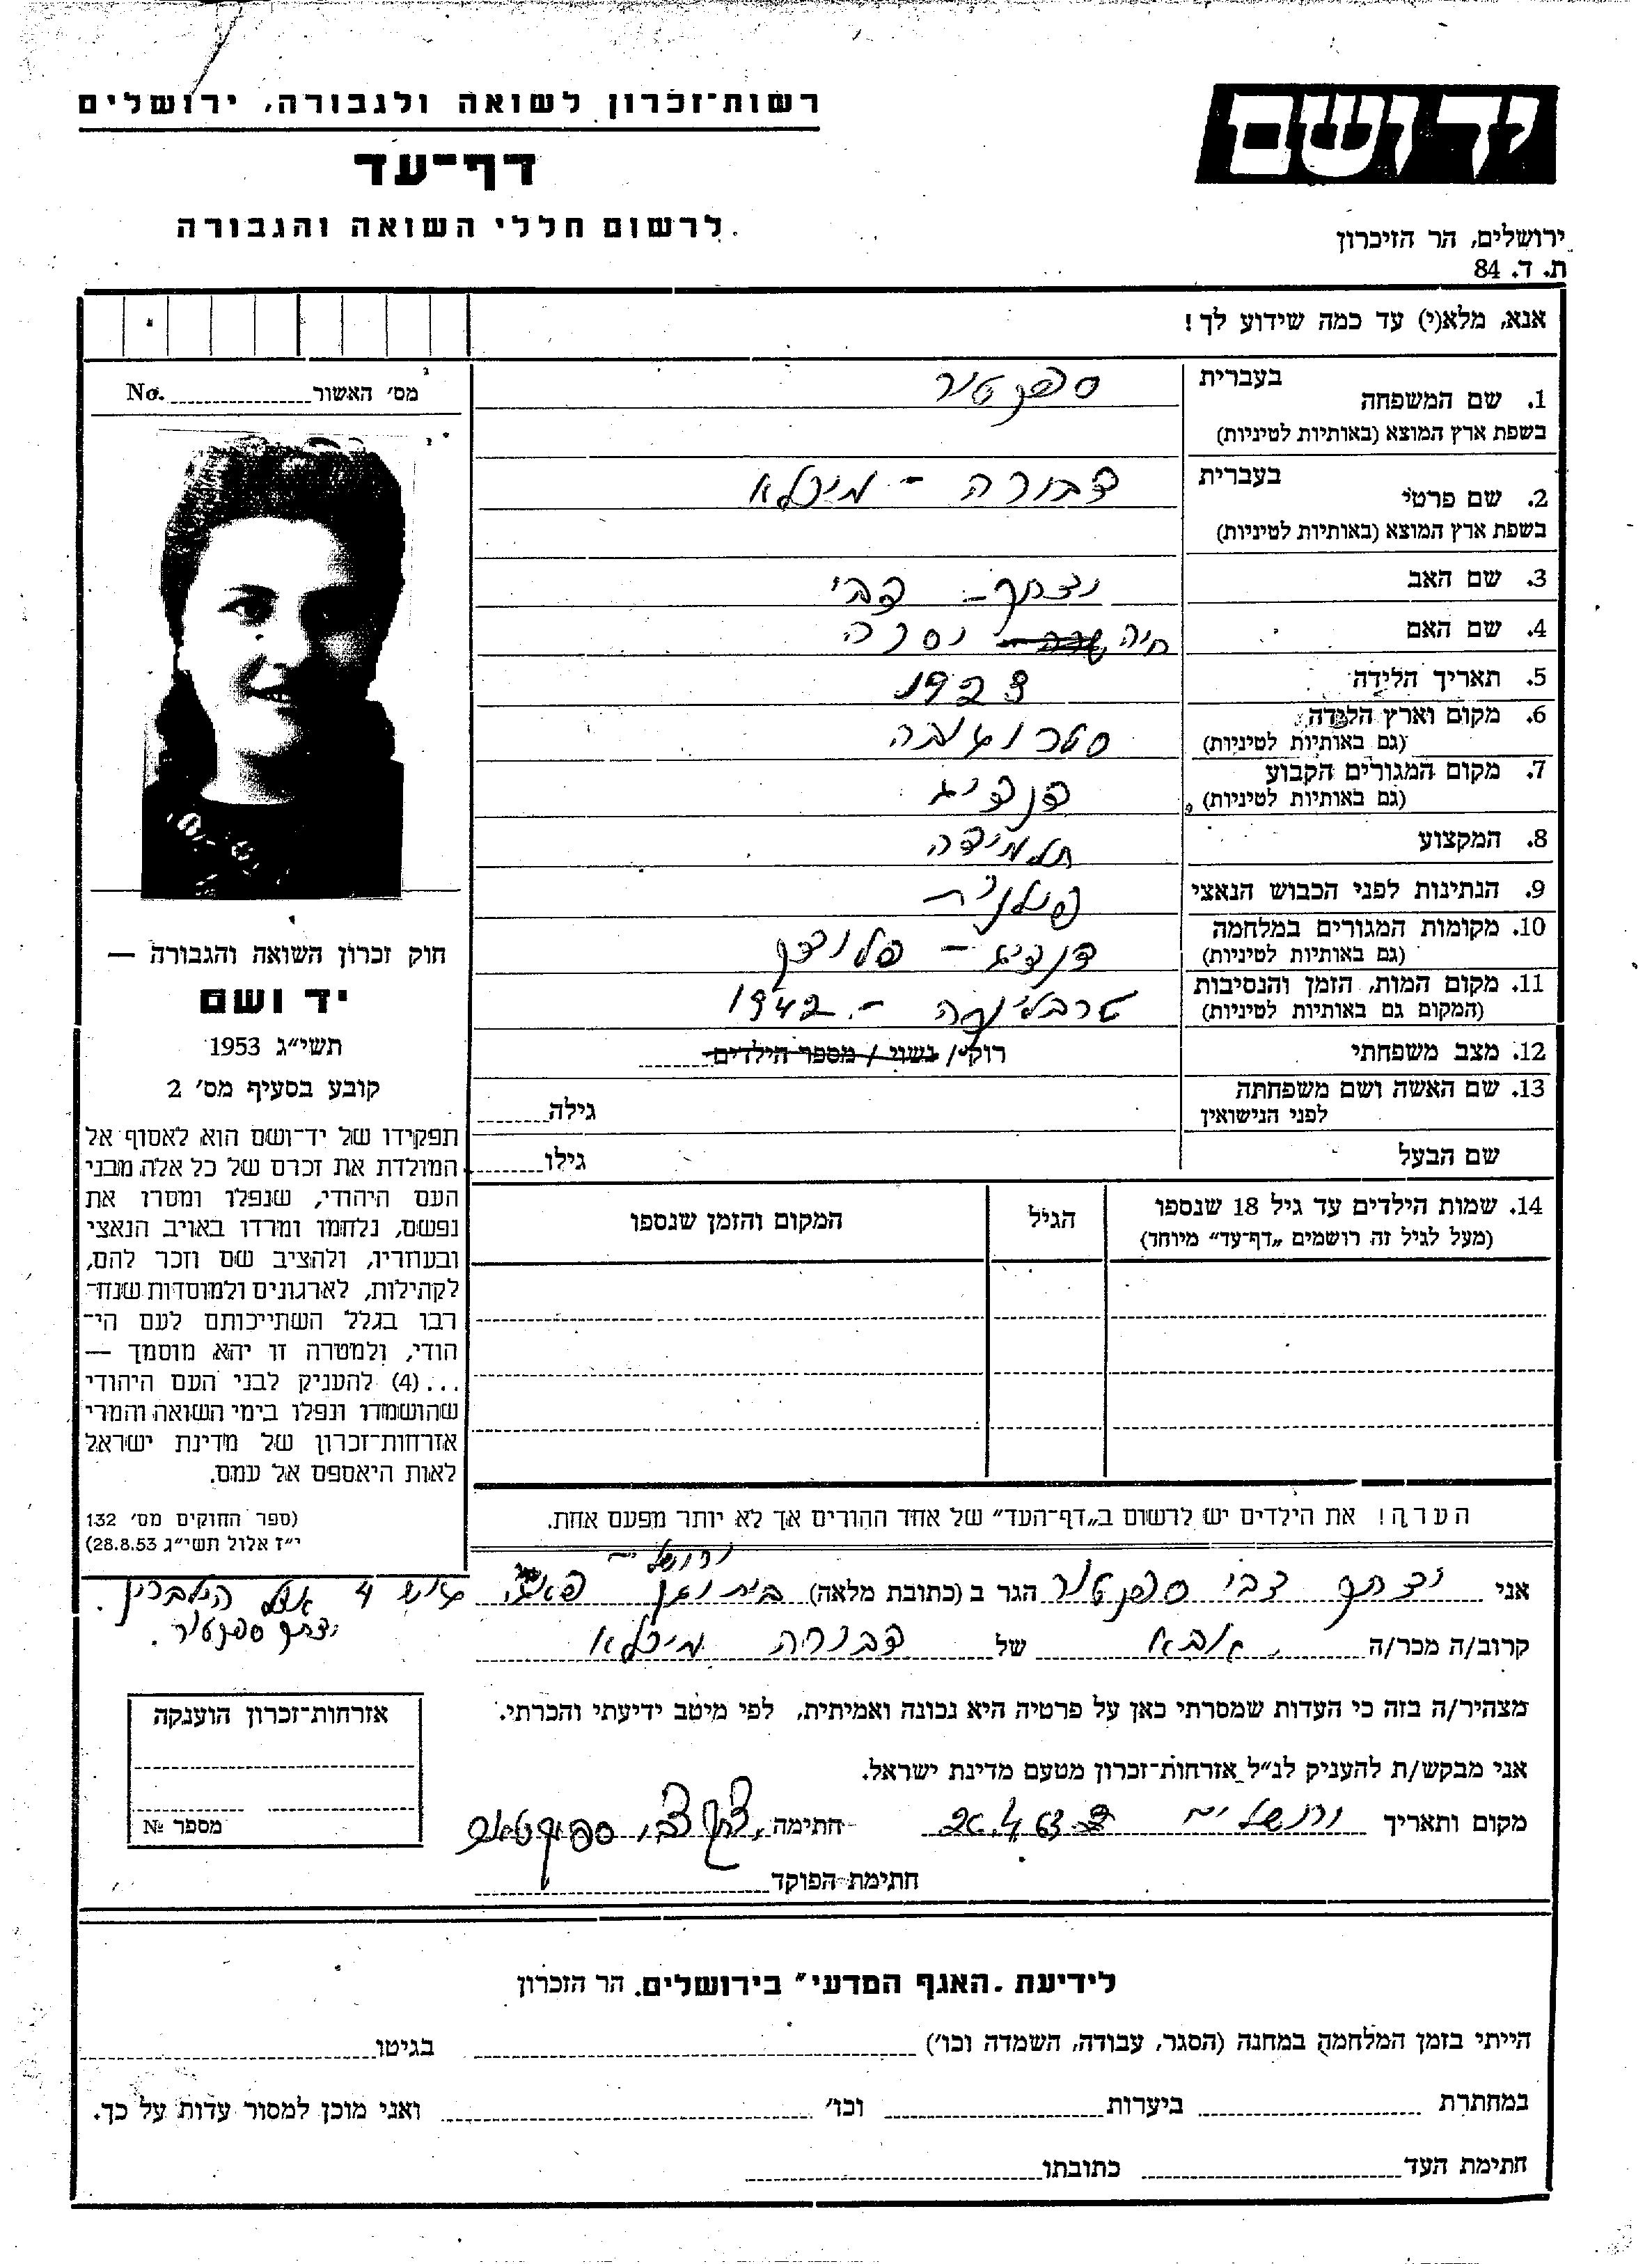 רשות־זכרון לשואה ולגבורה, ירושלים
דף־עד
לרשום חללי השואה והגבורה
יד ושם
ירושלים, הר הזיכרון
ת. ד. 84
אנא, מלא(י) עד כמה שידוע לך!
1. שם המשפחה
בעברית ספקטור
בשפת ארץ המוצא (באותיות לטיניות)
2. שם פרטי
בעברית דבורה - מיכלא
בשפת ארץ המוצא (באותיות לטיניות)
3. שם האב יצחק - צבי
4. שם האם חיה
5. תאריך הלידה 1923
6. מקום וארץ הלידה
(גם באותיות לטיניות)
7. מקום המגורים הקבוע דנציג
(גם באותיות לטיניות)
8. המקצוע תלמידה
9. הנתינות לפני הכבוש הנאצי פולנית
10. מקומות המגורים במלחמה דנציג - פלוצק
(גם באותיות לטיניות)
11. מקום המות, הזמן והנסיבות טרבלינקה - 1942
(המקום גם באותיות לטיניות)
12. מצב משפחתי רוק / נשוי / מספר הילדים
13. שם האשה ושם משפחתה
לפני הנישואין גילה
שם הבעל גילו
14. שמות הילדים עד גיל 18 שנספו הגיל המקום והזמן שנספו
(מעל לגיל זה רושמים „דף־עד" מיוחד)
הערה! את הילדים יש לרשום ב„דף־העד" של אחד ההורים אך לא יותר מפעם אחת.
מס' האשור No.
חוק זכרון השואה והגבורה —
יד ושם
תשי״ג 1953
קובע בסעיף מס' 2
תפקידו של יד־ושם הוא לאסוף אל
המולדת את זכרם של כל אלה מבני
העם היהודי, שנפלו ומסרו את
נפשם, נלחמו ומרדו באויב הנאצי
ובעוזריו, ולהציב שם וזכר להם,
לקהילות, לארגונים ולמוסדות שנח־
רבו בגלל השתייכותם לעם הי־
הודי, ולמטרה זו יהא מוסמך —
...(4) להעניק לבני העם היהודי
שהושמדו ונפלו בימי השואה והמרי
אזרחות־זכרון של מדינת ישראל
לאות היאספם אל עמם.
(ספר החוקים מס' 132
י״ז אלול תשי״ג 28.8.53)
ירושלים
אני יצחק צבי ספקטור הגר ב (כתובת מלאה) בית וגן 4 אצל הילברין.
יצחק ספקטור.
קרוב/ה מכר/ה אבא של דבורה מיכלא
מצהיר/ה בזה כי העדות שמסרתי כאן על פרטיה היא נכונה ואמיתית, לפי מיטב ידיעתי והכרתי.
אני מבקש/ת להעניק לנ״ל אזרחות־זכרון מטעם מדינת ישראל.
מקום ותאריך ירושלים חתימה יצחק צבי ספקטור
חתימת הפוקד
אזרחות־זכרון הוענקה
מספר №
לידיעת „האגף המדעי" בירושלים. הר הזכרון
הייתי בזמן המלחמה במחנה (הסגר, עבודה, השמדה וכו') בגיטו
במחתרת ביערות וכו' ואני מוכן למסור עדות על כך.
חתימת העד כתובתו